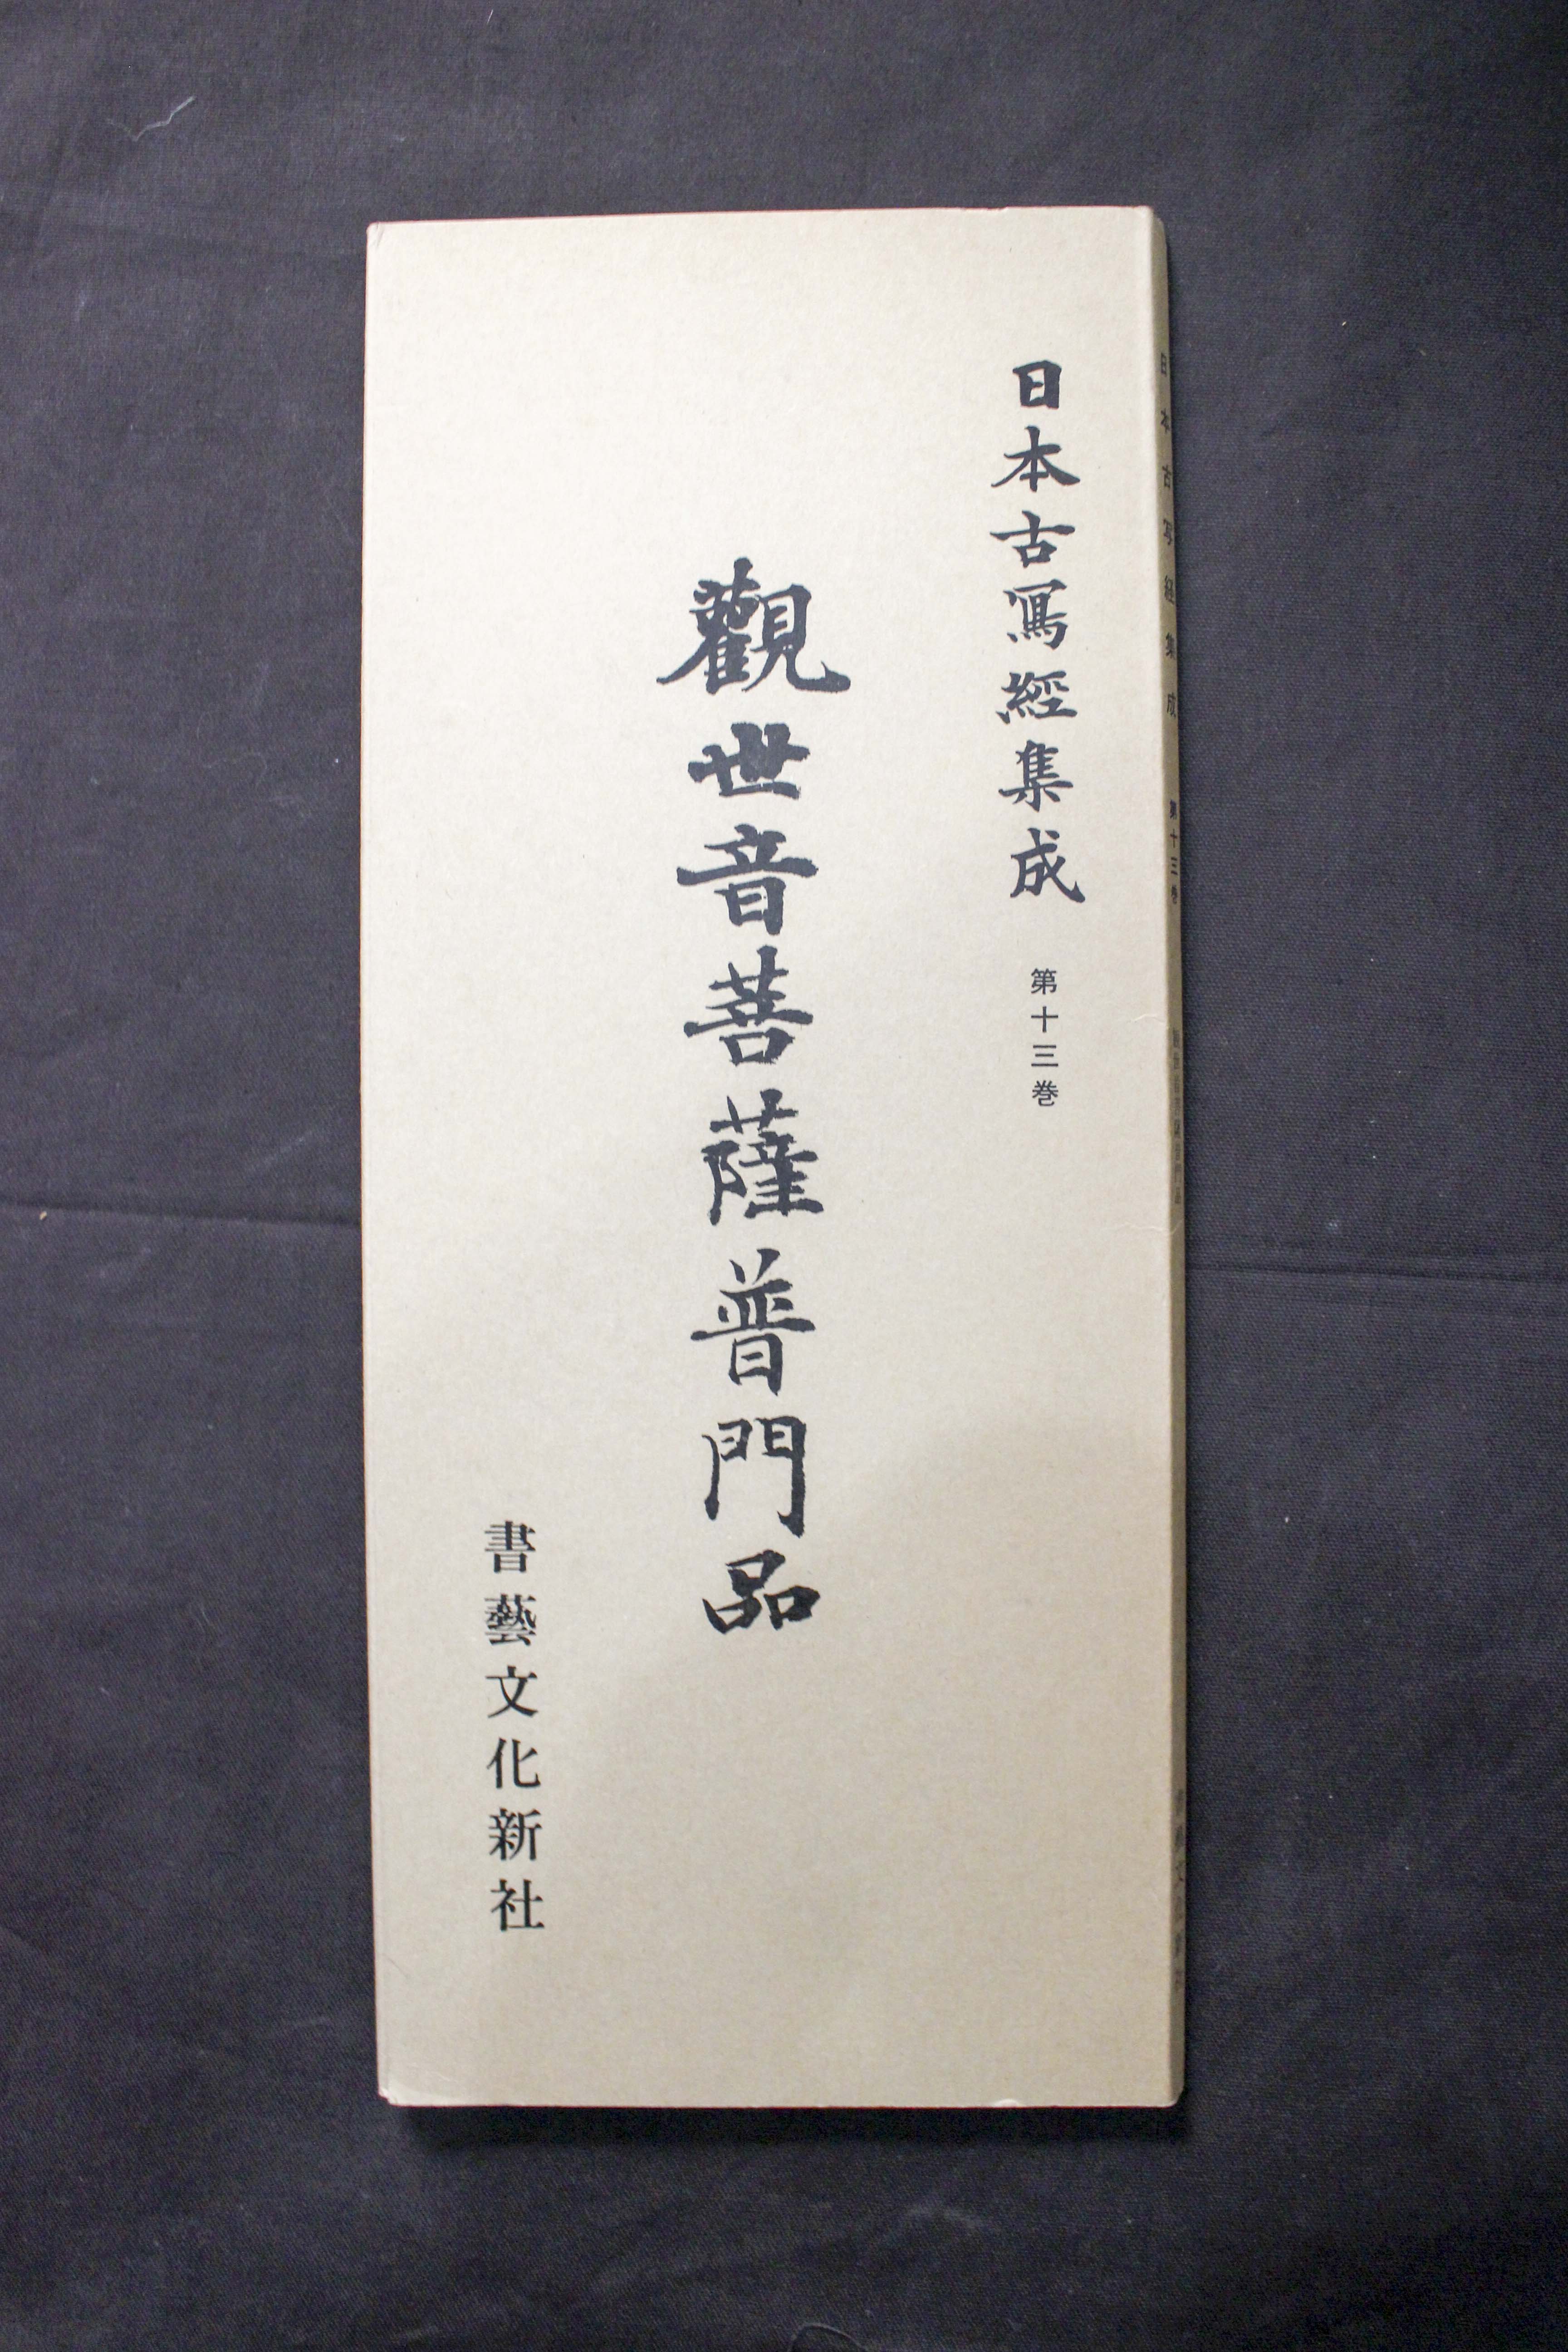 日本古寫經集成 第十三巻
觀世音菩薩普門品
書藝文化新社
日本古写経集成 第十三巻